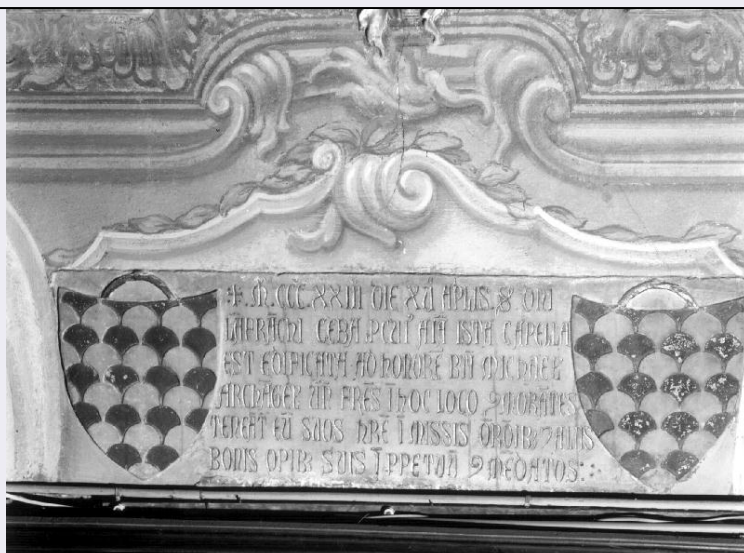 ✠ M̄. CCC̄. XXIII DIE XV APLIS. S̄ DN̄I
LĀFRĀCHI CEBA . P CUI' AĪA ISTA CAPELLA
EST EDIFICATA AD HONORĒ BĪI MICHAEL
ARCHĀGELI ŪN FRĒS Ī HOC LOCO 9MORĀTES
TENEĀT EŪ SUOS HRĒ Ī MISSIS ORŌIB; 7 ALIIS
BONIS OPIB; SUIS Ī PPETUŪ 9MĒDATOS :·